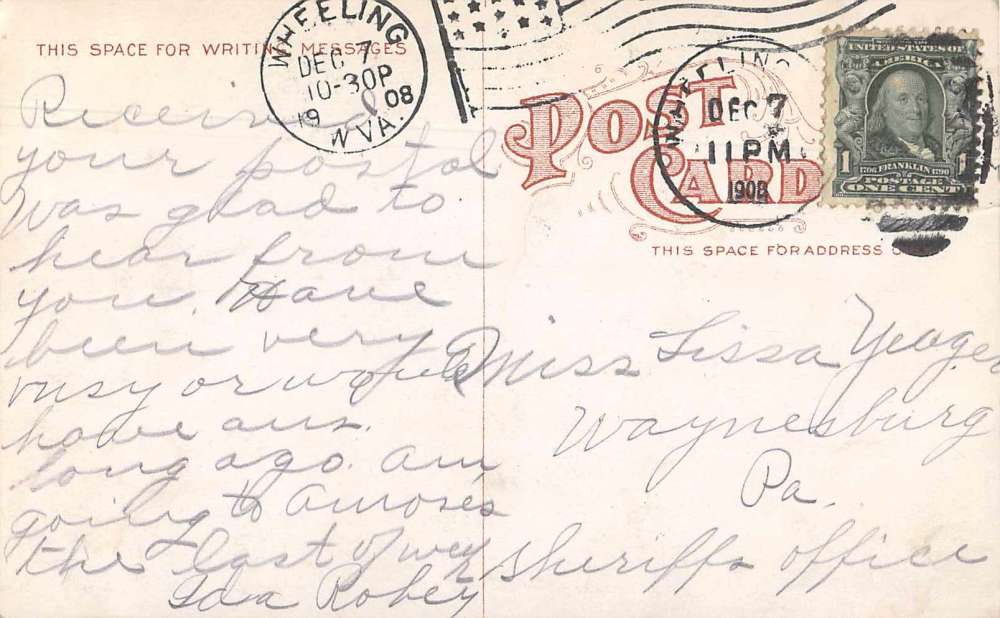 THIS SPACE FOR WRITING MESSAGES
WHEELING
DEC 7
10-30P
19 08
W VA.
Received
your postal
was glad to
hear from
you. Have
been very
busy or would
have ans.
long ago. am
going to
the last of week
Ida Robey
POST
CARD
WHEELING
DEC 7
11 PM
1908
UNITED STATES OF
AMERICA
1
1706 FRANKLIN 1790
POSTAGE
ONE CENT
THIS SPACE FOR ADDRESS
Miss Lissa Yeager
Waynesburg
Pa.
Sheriffs office